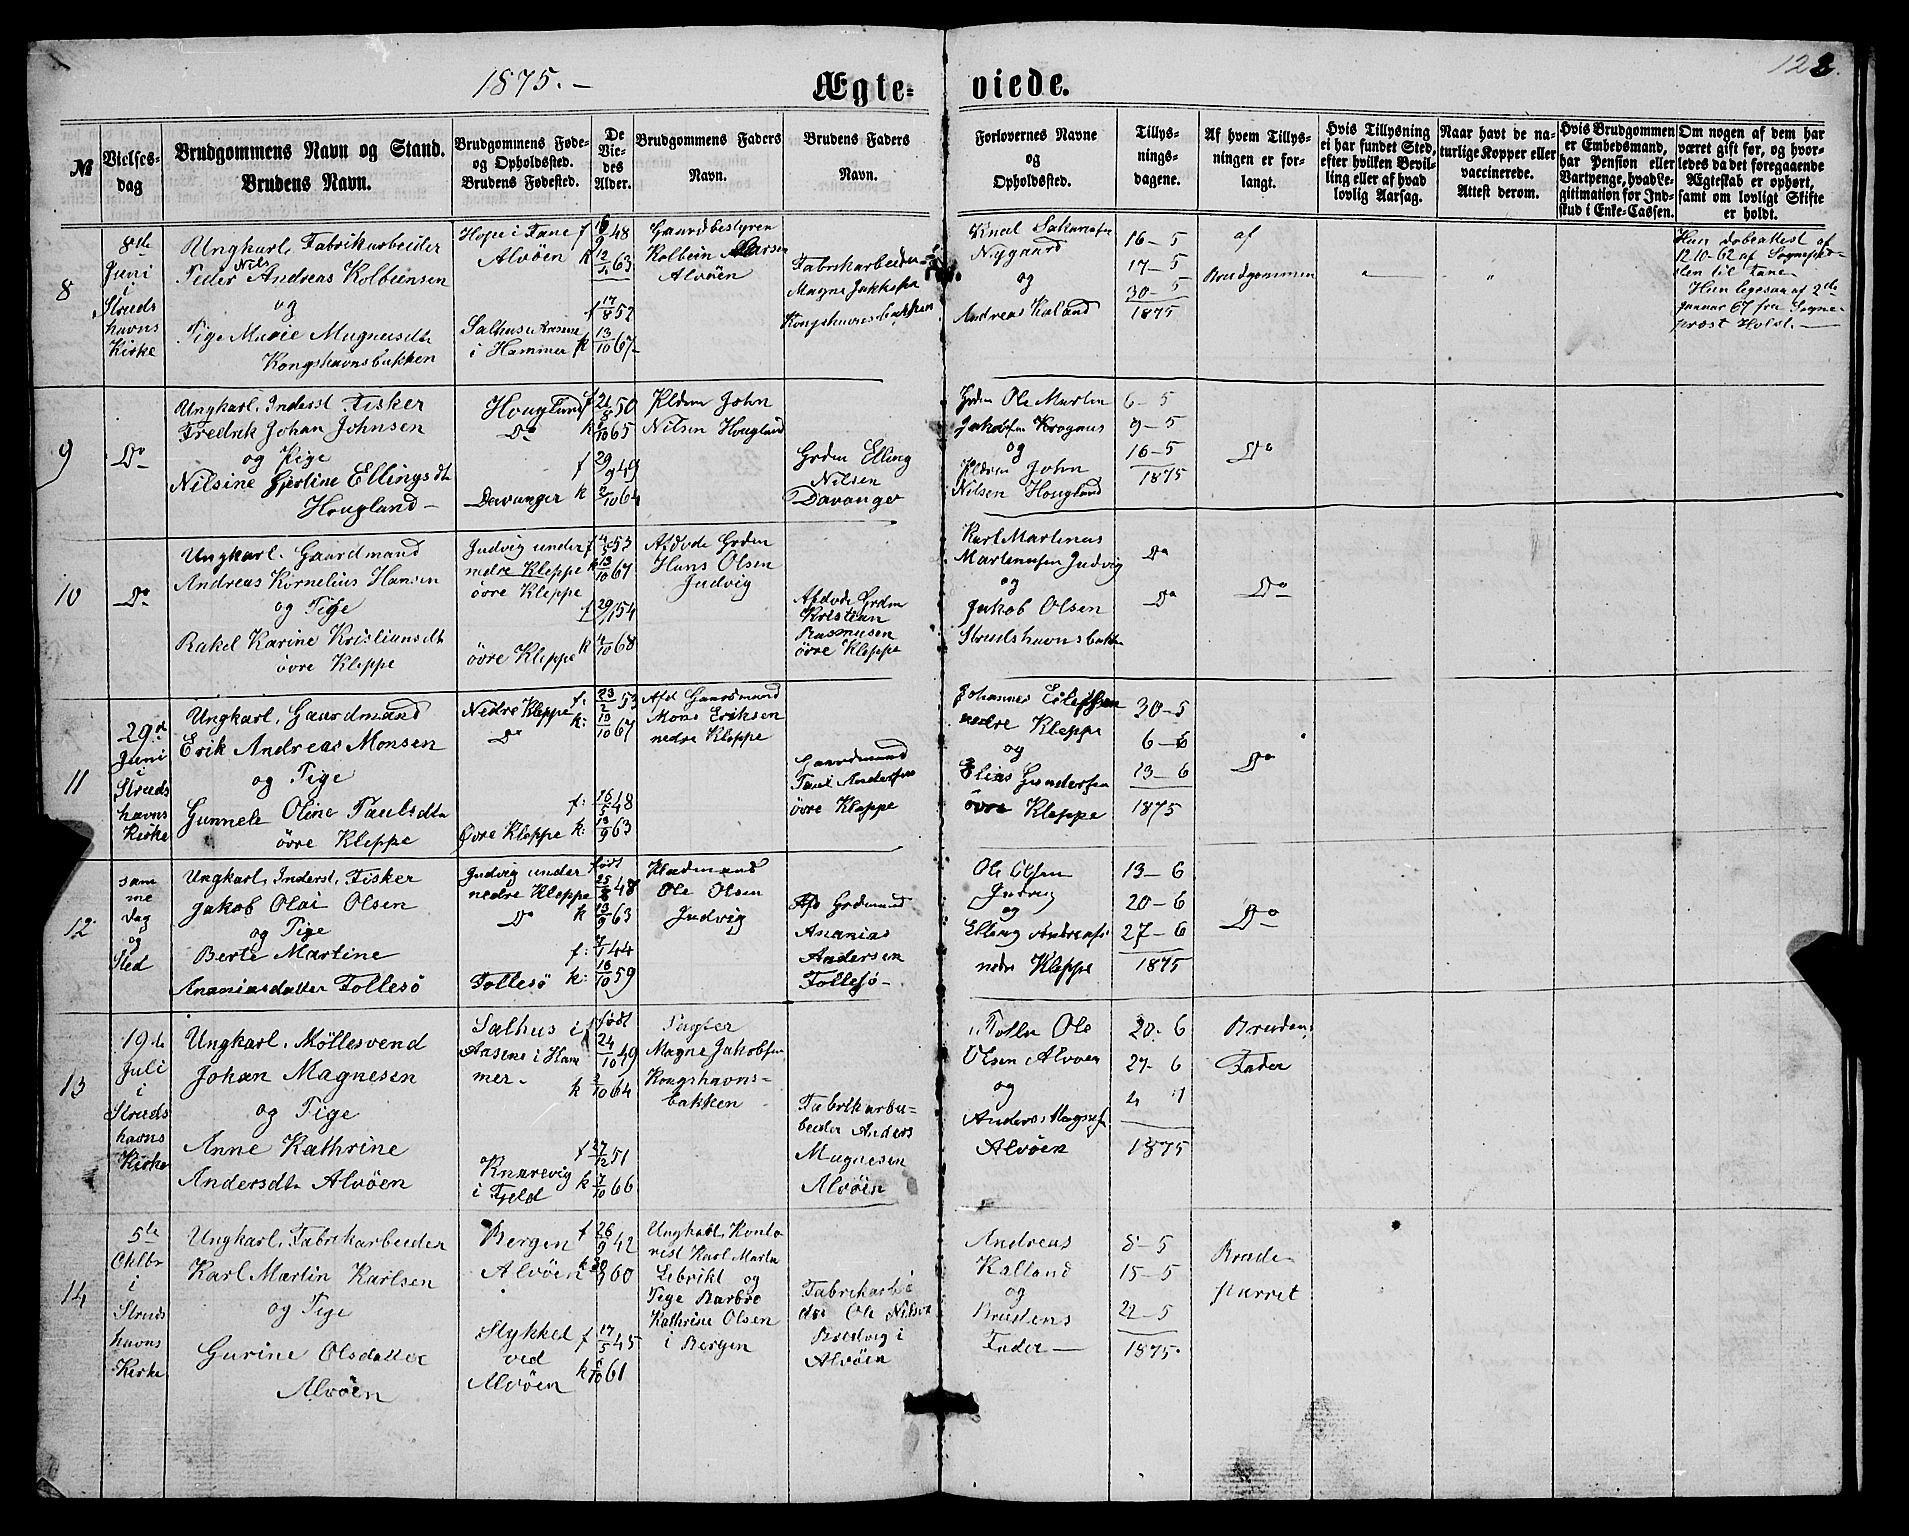 1875.-
Ægte-
viede.
№
Vielses-
dag
Brudgommens Navn og Stand.
Brudens Navn.
Brudgommens Føde-
og Opholdssted.
Brudens Fødested.
De
Vie-
des
Alder.
Brudgommens Faders
Navn.
Brudens Faders
Navn.
Forlovernes Navne
og
Opholdssted.
Tillys-
nings-
dagene.
Af hvem Tillys-
ningen er for-
langt.
Hvis Tillysning
ei har fundet Sted,
efter hvilken Bevil-
ling eller af hvad
lovlig Aarsag.
Naar havt de na-
turlige Kopper eller
vaccinerede.
Attest derom.
Hvis Brudgommen
er Embedsmand,
har Pension eller
Vartpenge, hvad Le-
gitimation for Ind-
skud i Enke-Cassen.
Om nogen af dem har
været gift før, og hvor-
ledes da det foregaaende
Ægteskab er ophørt,
samt om lovligt Skifte
er holdt.
8
8de
Juni
i
Struds
havns
Kirke
Ungkarl, Fabrikarbeider
Peder Nils Andreas Kolbeinsen
og
Pige Marie Magnusdtr
Kongshavnsbakken
Hope i Fane f
Alvöen k
Salhus
i Hammer k
Gaardbestyrer
Kolbein Larsen
Alvöen
Fabrikarbeider
Magne Jakobsen
Kongshavnsbakken
Nygaard
og
Andreas Kaland
16-5
17-5
30-5
1875
af
Brudgommen
Han døbeattest af
12 10-62 af Sognepre-
sten til Fane
Hun ligesaa af 2de
Januar 67 fra Sogne-
prest Holst.
9
Do
Ungkarl, Inderst Fisker
Fredrik Johan Johnsen
og Pige
Nilsine Gjertine Ellingsdtr
Hougland
Hougland f 21/8 50
Do k /10 65
f 29/9 49
Davanger k 2/10 64
Pldsm John
Nilsen Hougland
Grdm Elling
Nilsen
Davanger
Grdm Ole Martin
Jakobsen Krognes
og
Pldsm John
Nilsen Hougland
6-5
9-5
16-5
1875
Do
10
Do
Ungkarl. Gaardmand
Andreas Kornelius Hansen
og Pige
Rakel Karine Kristiansdtr
övre Kleppe
Judvig under f
nedre Kleppe k 13/10 67
övre Kleppe
f 29/ 54
övre Kleppe k 4/10 68
Afdöde Grdm
Hans Olsen
Judvig
Afdöde Grdm
Kristian
Rasmusen
övre Kleppe
Karl Martinus
Martinusen Judvig
og
Jakob Olsen
Strudshavnsbak
Do
Do
Do
11
29de
Juni
i
Struds
havns
Kirke
Ungkarl, Gaardmand
Erik Andreas Monsen
og Pige
Gunnele Oline Paulsdtr
övre Kleppe
Nedre Kleppe f: 23/2 53
Do k: 13/10 67
f: 16/5 48
Övre Kleppe k: 13/9 63
Afd Gaardmand
Mons Eriksen
nedre Kleppe
Gaardmand
Paul Andersen
övre Kleppe
Johannes
nedre Kleppe
og
Elias Gundersen
övre Kleppe
30-5
6-6
13-6
1875
Do
12
sam
me
Dag
og
Sted
Ungkarl, Inderst, Fisker
Jakob Olai Olsen
og Pige
Berte Martine
Ananiasdatter Follesö
Judvig under født
nedre Kleppe 25/8 48
Do k 13/9 63
f: 44
Follesö k: 16/10 59
Pladsmand
Ole Olsen
Judvig
Afd Grdmand
Ananias
Andersen
Follesö-
Ole Olsen
Judvig
og
Elling Andreas
nedre Kleppe
13-6
20-6
27-6
1875
Do
13
19de
Juli
i
Struds
havns
Kirke
Ungkarl, Möllesvend
Johan Magnesen
og Pige
Anne Kathrine
Andersdtr Alvöen
Salhus i født
i Ham 24/10 49
mer- k 2/10 64
f 27/12 51
Knarevig k 7/10 66
i Fjeld
Magne Jakobsen
Kongshavns-
bakken
Fabrikarbe-
beider Anders
Magnesen
Alvöen
Ole
Olsen Alvöen
og
Anders Magnes
Alvöen
20-6
27-6
4 7
1875
Brudens
Fader
14
5te
Oktbr
i
Struds
havns
Kirke
Ungkarl, Fabrikarbeider
Karl Martin Karlsen
og Pige
Gurine Olsdatter
Alvöen
Bergen f 26/9 42
Alvöen k 30/9 60
Stykket f 17/5 45
ved
Alvöen k /10 61
Ungkarl, Konto
rist Karl Martin
Lebrikt og
Pige Barbro
Kathrine Olsen
i Bergen
Fabrikarbei
der Ole Nilsen
Bredvig i
Alvöen
Andreas
Kalland
og
Brudens
Fader
8-5
15-5
22-5
1875.
Brude-
parret